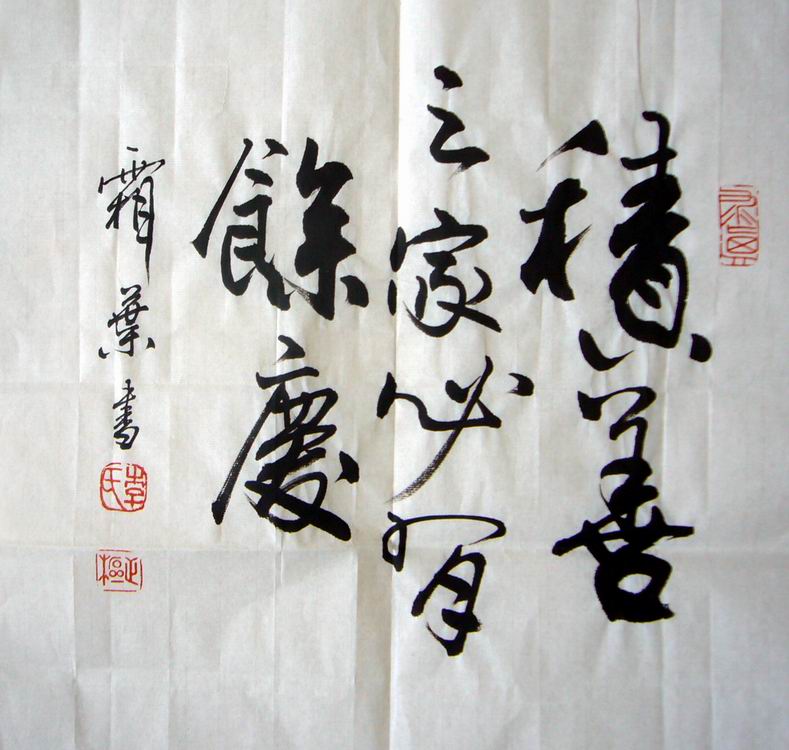 積善
之家必有
餘慶
霜葉書
李氏